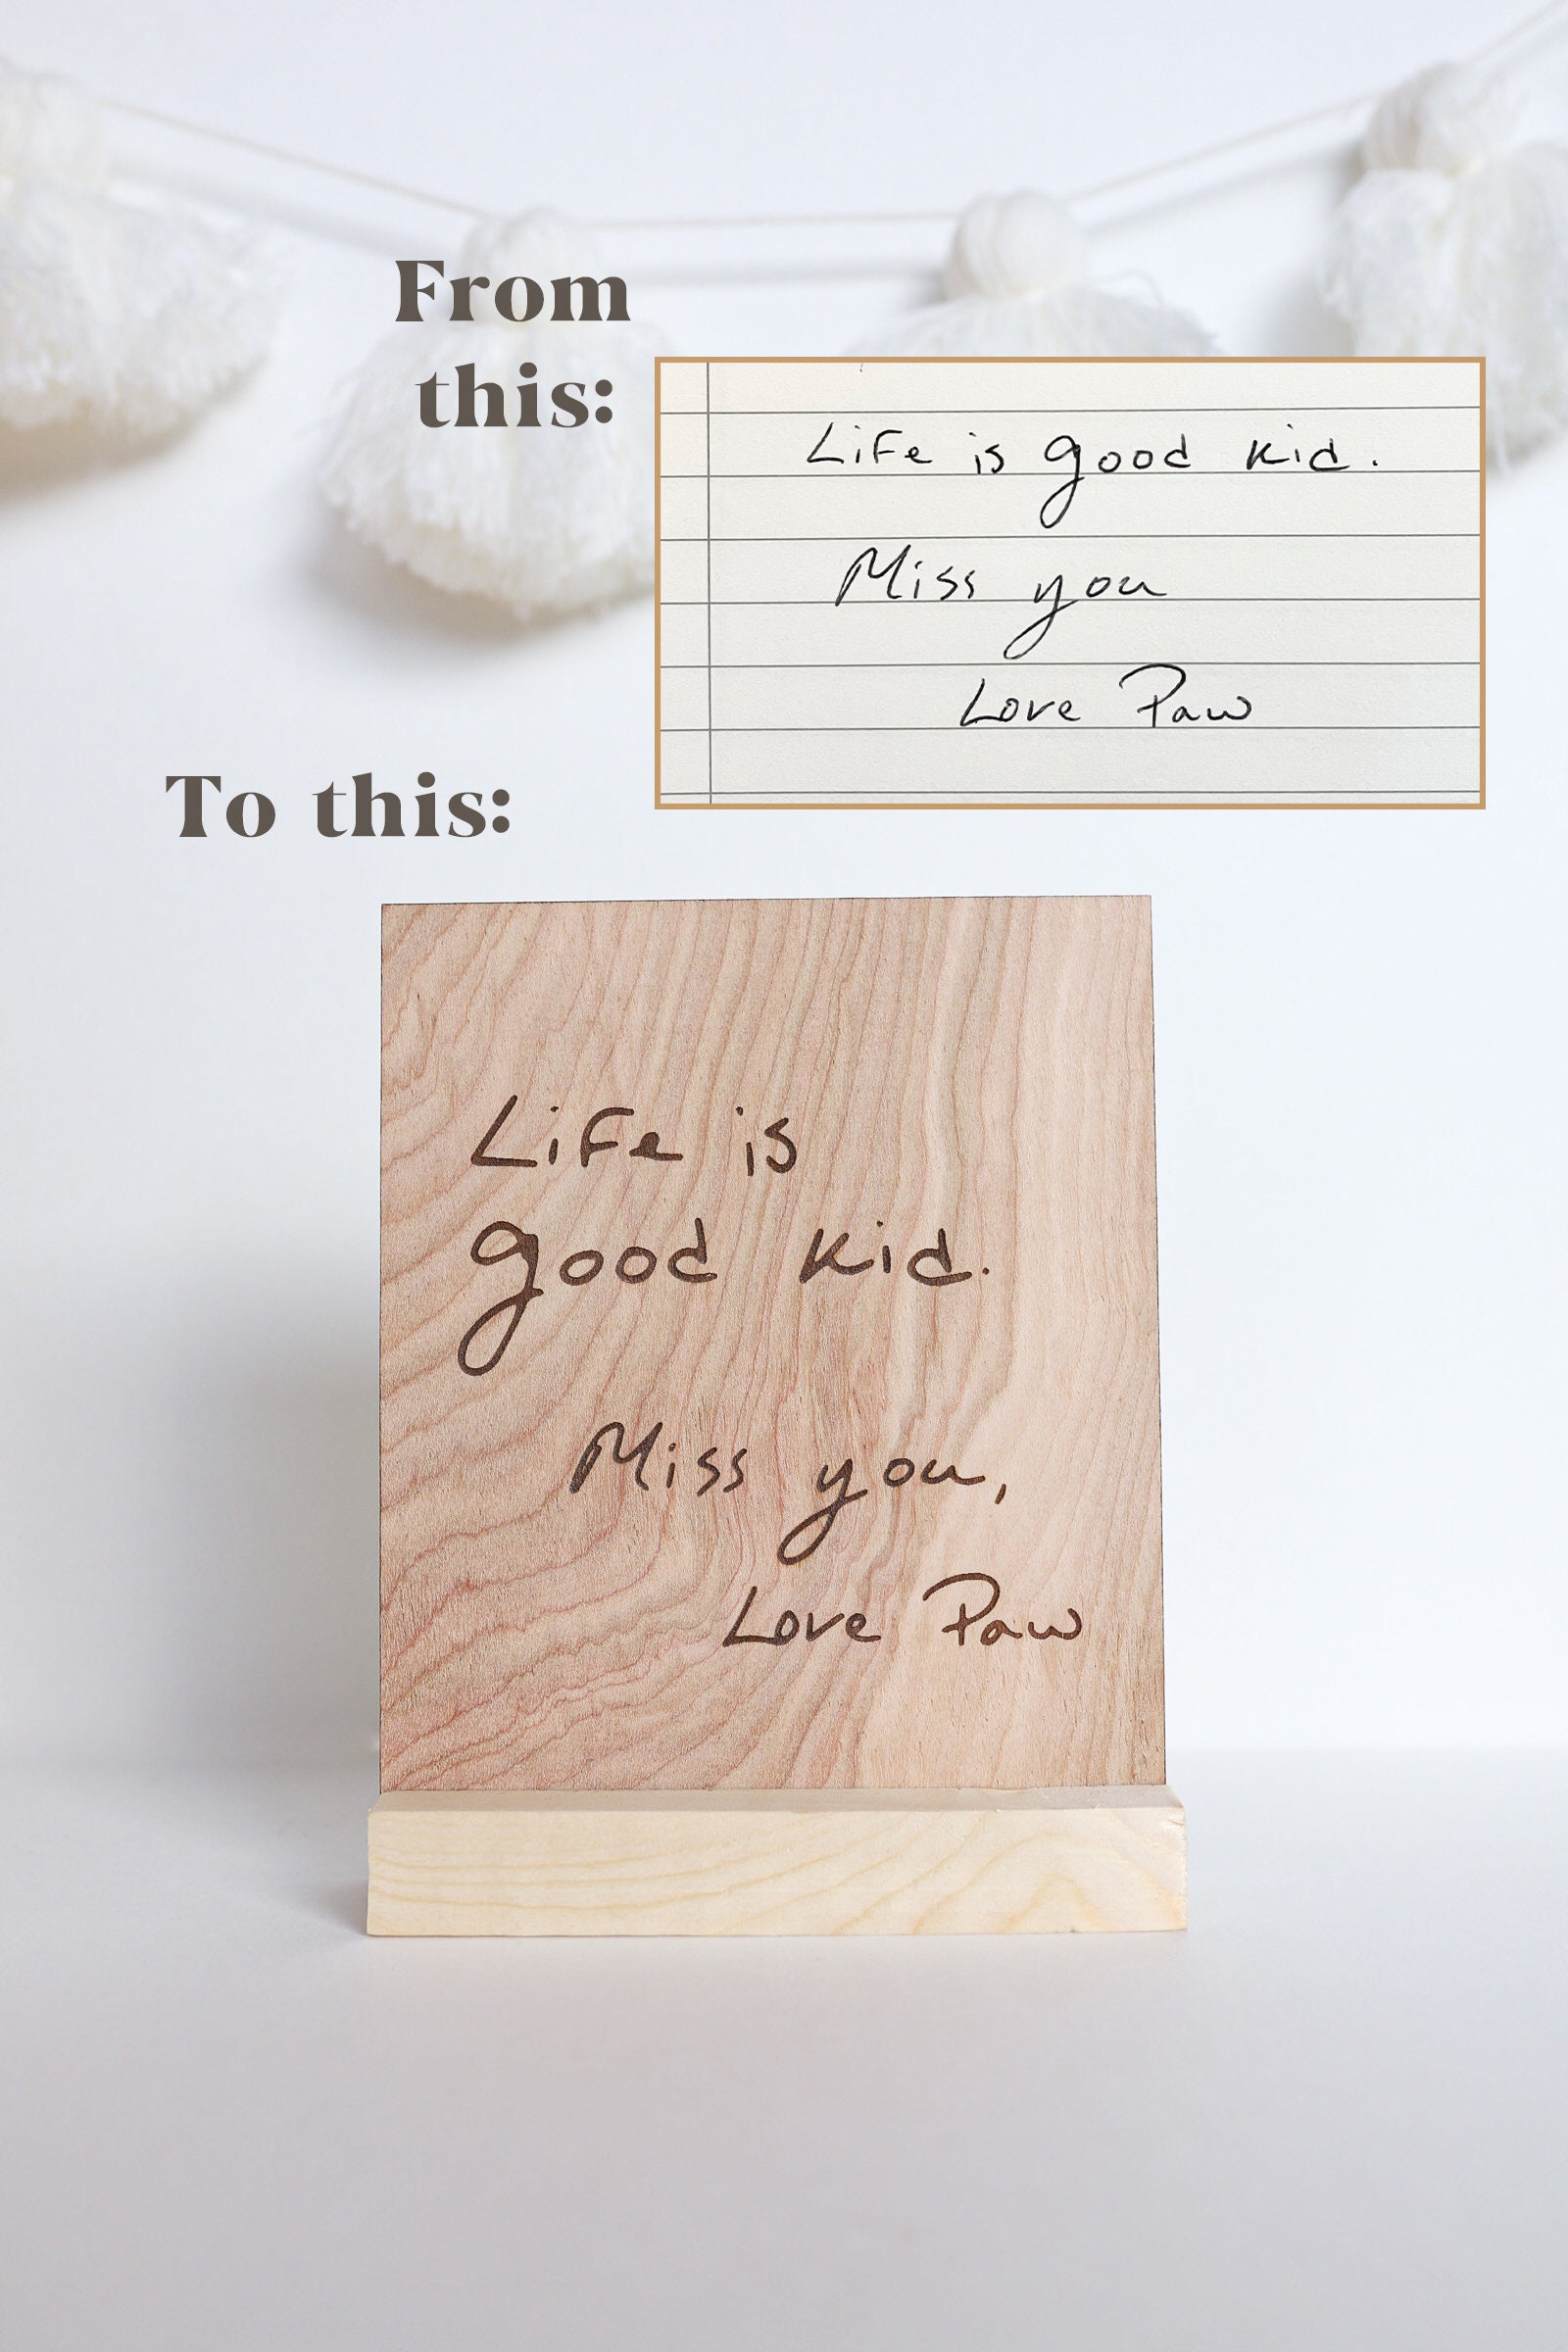 From
this:
Life is good kid.
Miss you
Love Paw
To this:
Life is
good kid.
Miss you,
Love Paw